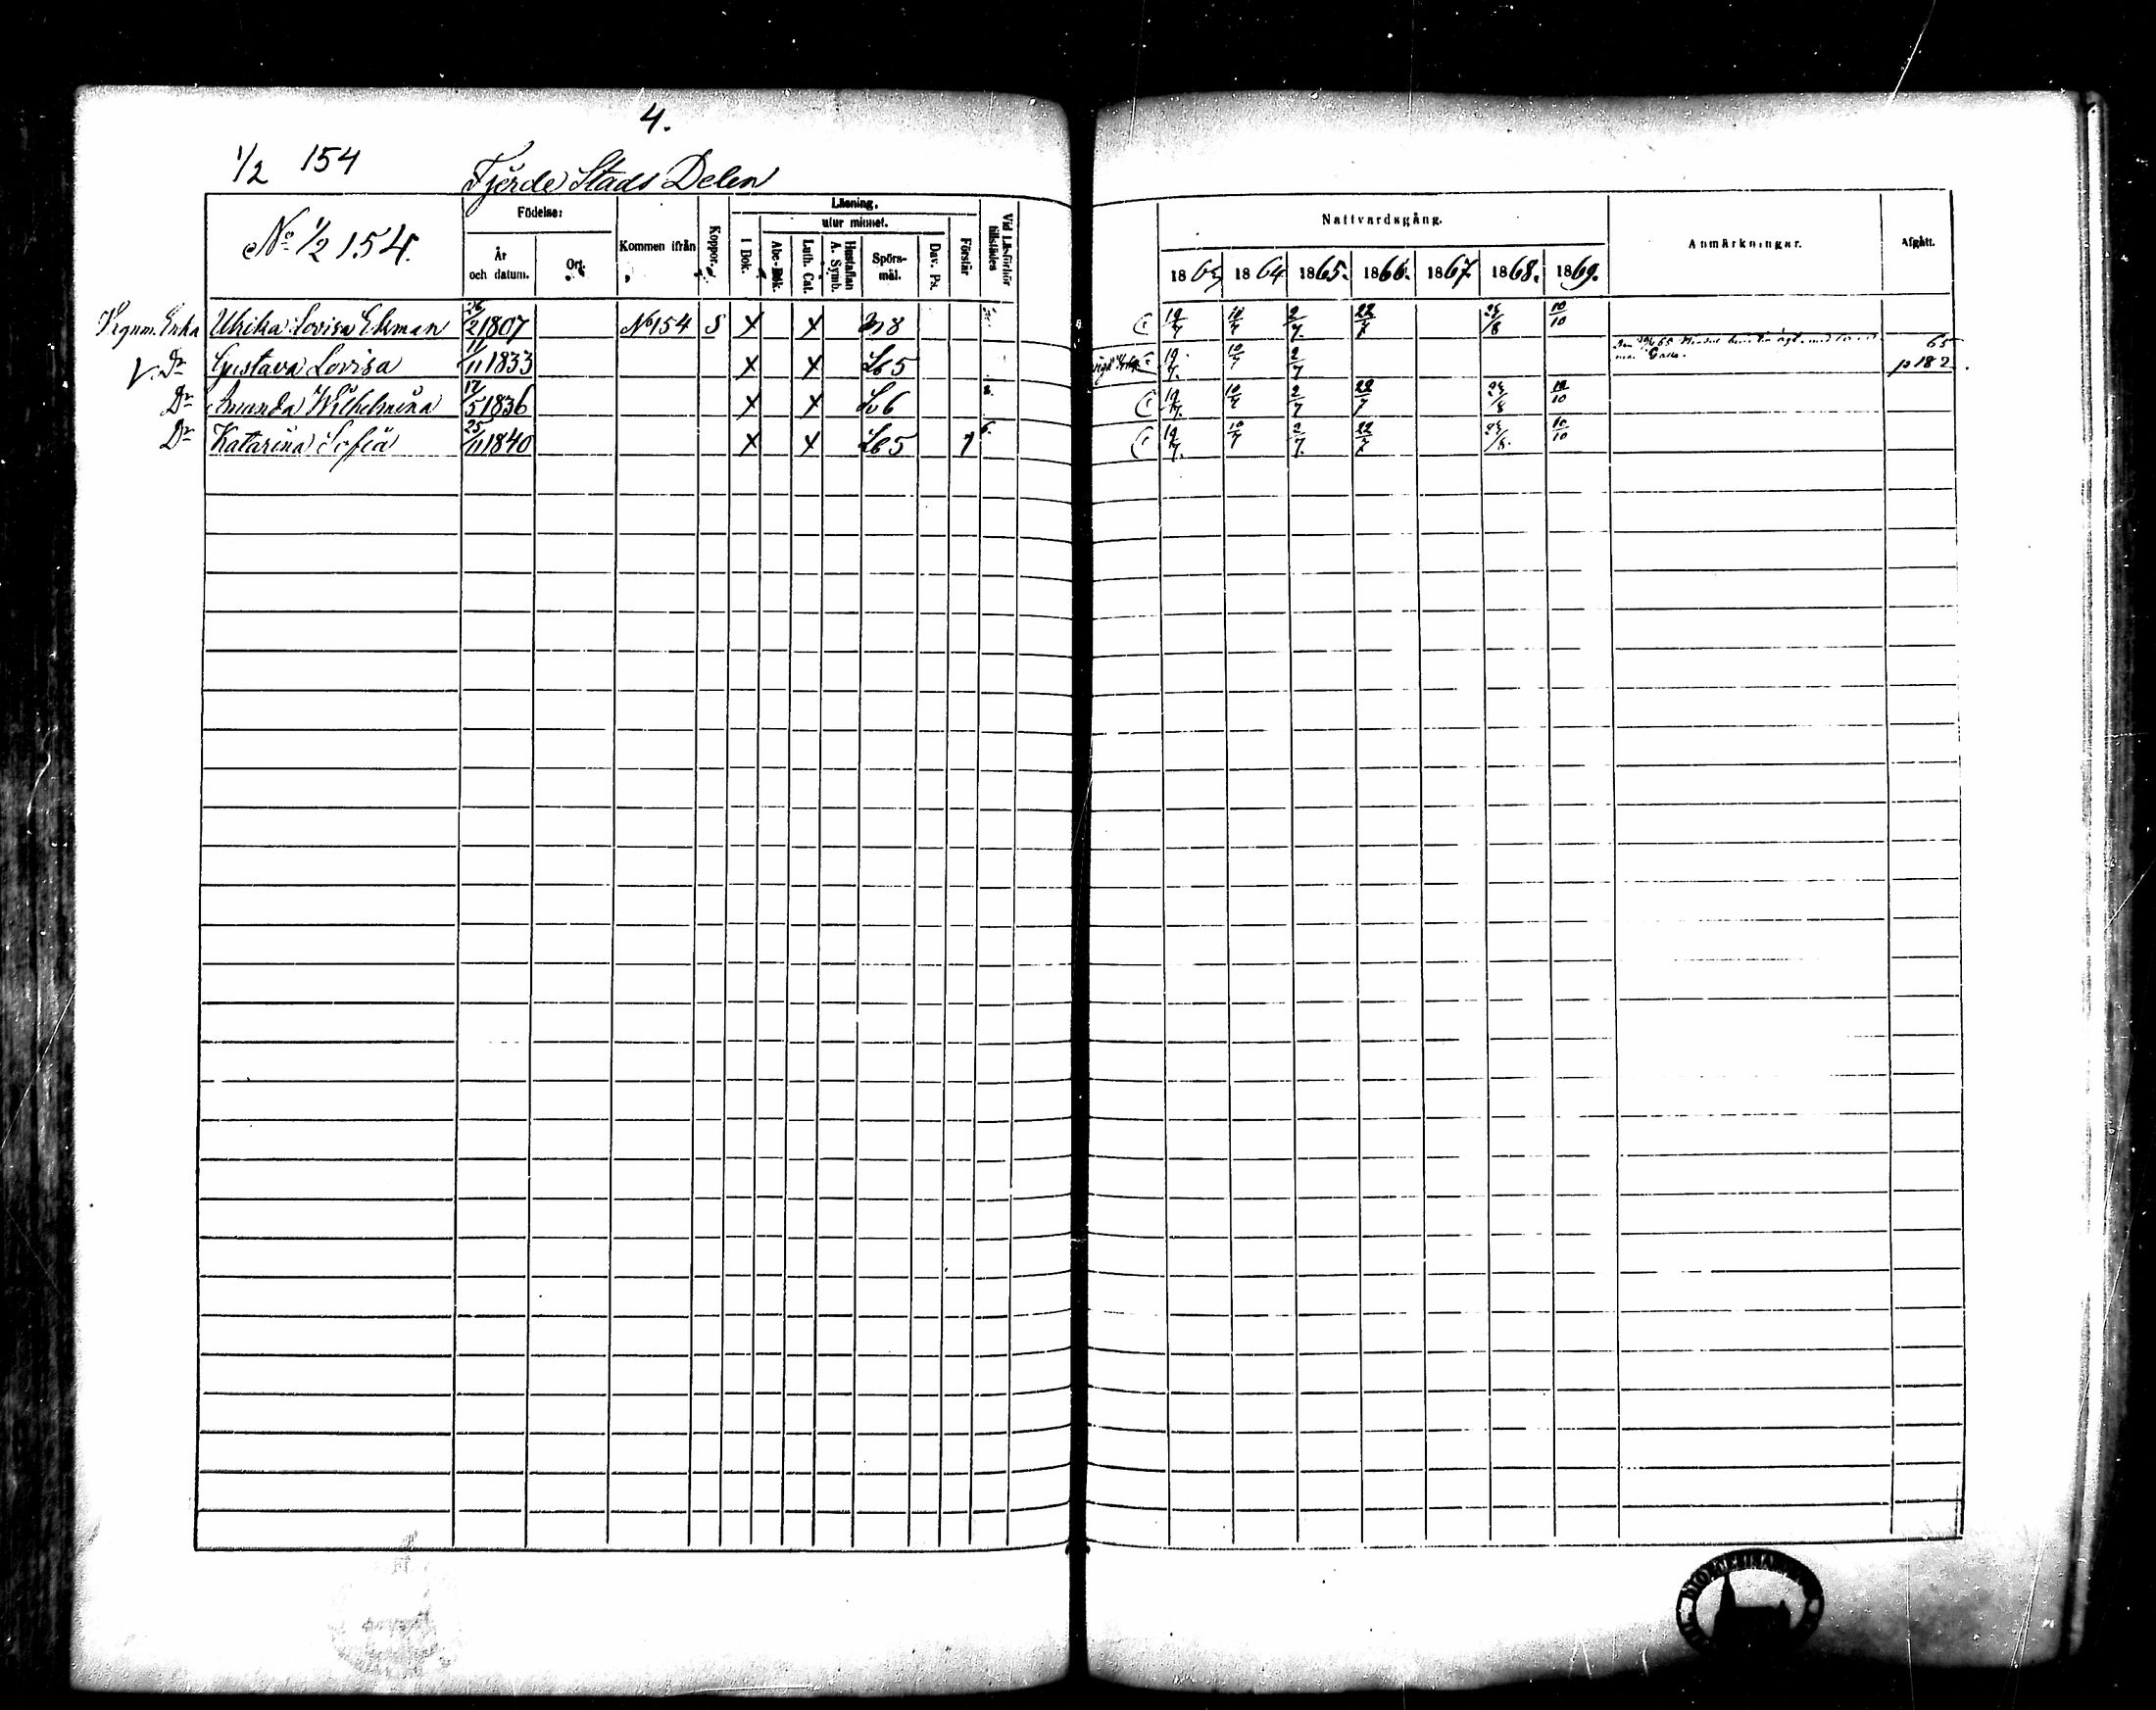 4.
1/2 154
Fjerde Stads Delen
No 1/2 154.
Födelse:
År och datum.
Ort.
Kommen ifrån
Koppor.
Läsning.
utur minnet.
I Bok.
Abc-Bok.
Luth. Cat.
Hustaflan A. Symb.
Spörsmål.
Dav. Ps.
Förstår
Vid Läsförhör tillstädes
Nattvardsgång.
1863 1864 1865. 1866. 1867 1868. 1869.
Anmärkningar.
Afgått.
Enka Ulrika Lovisa Ekman 26/2 1807 No 154 S X X 8 19/7 10/7 2/7 22/7 10/10
Dr Gustava Lovisa 11/11 1833 X X 5 19/7. 10/7 2/7 65 p 182.
Dr Amanda Wilhelmina 17/5 1836 X X 6 19/7. 10/7 2/7 22/7 10/10
Dr Katarina Sofia 25/11 1840 X X 5 1 6. 19/7. 10/7 2/7. 22/7 10/10